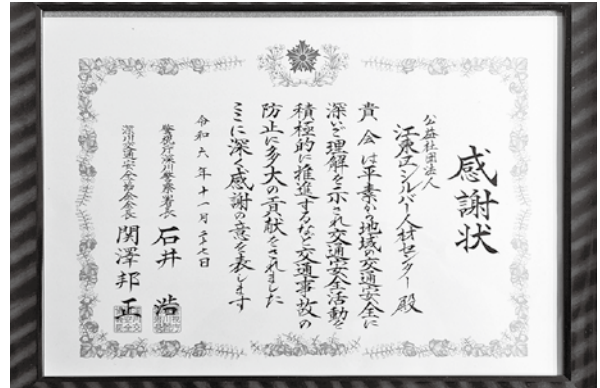 感謝状
公益社団法人
江東区シルバー人材センター殿
貴会は平素から地域の交通安全に
深いご理解を示され交通安全活動を
積極的に推進するなど交通事故の
防止に多大の貢献をされました
ここに深く感謝の意を表します
令和六年十一月二十七日
警視庁深川警察署長 石井 浩
深川交通安全協会会長 関澤邦正